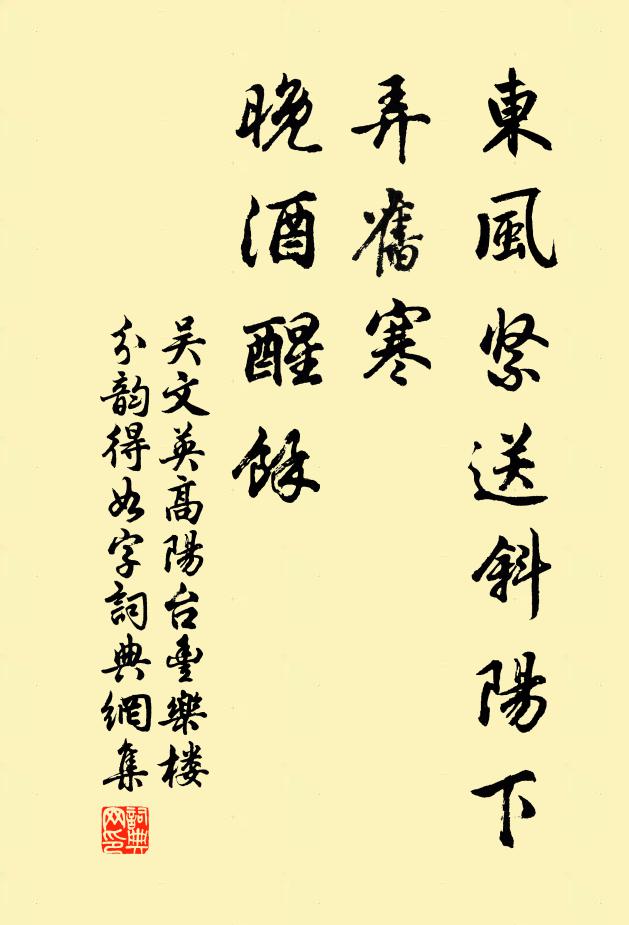 東風緊送斜陽下
弄舊寒
晚酒醒餘
吴文英高陽台豐樂楼
分韵得如字詞典網集
詞典
网印